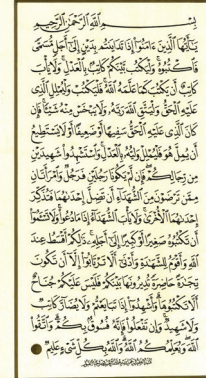 بِسْمِ اللَّهِ الرَّحْمَٰنِ الرَّحِيمِ
يَا أَيُّهَا الَّذِينَ ءَامَنُوا إِذَا تَدَايَنتُم بِدَيْنٍ إِلَىٰ أَجَلٍ مُّسَمًّى
فَاكْتُبُوهُ وَلْيَكْتُب بَّيْنَكُمْ كَاتِبٌ بِالْعَدْلِ وَلَا يَأْبَ
كَاتِبٌ أَن يَكْتُبَ كَمَا عَلَّمَهُ اللَّهُ فَلْيَكْتُبْ وَلْيُمْلِلِ الَّذِي
عَلَيْهِ الْحَقُّ وَلْيَتَّقِ اللَّهَ رَبَّهُ وَلَا يَبْخَسْ مِنْهُ شَيْئًا فَإِن
كَانَ الَّذِي عَلَيْهِ الْحَقُّ سَفِيهًا أَوْ ضَعِيفًا أَوْ لَا يَسْتَطِيعُ
أَن يُمِلَّ هُوَ فَلْيُمْلِلْ وَلِيُّهُ بِالْعَدْلِ وَاسْتَشْهِدُوا شَهِيدَيْنِ
مِن رِّجَالِكُمْ فَإِن لَّمْ يَكُونَا رَجُلَيْنِ فَرَجُلٌ وَامْرَأَتَانِ
مِمَّن تَرْضَوْنَ مِنَ الشُّهَدَاءِ أَن تَضِلَّ إِحْدَاهُمَا فَتُذَكِّرَ
إِحْدَاهُمَا الْأُخْرَىٰ وَلَا يَأْبَ الشُّهَدَاءُ إِذَا مَا دُعُوا وَلَا تَسْأَمُوا
أَن تَكْتُبُوهُ صَغِيرًا أَوْ كَبِيرًا إِلَىٰ أَجَلِهِ ذَٰلِكُمْ أَقْسَطُ عِندَ
اللَّهِ وَأَقْوَمُ لِلشَّهَادَةِ وَأَدْنَىٰ أَلَّا تَرْتَابُوا إِلَّا أَن تَكُونَ
تِجَارَةً حَاضِرَةً تُدِيرُونَهَا بَيْنَكُمْ فَلَيْسَ عَلَيْكُمْ جُنَاحٌ
أَلَّا تَكْتُبُوهَا وَأَشْهِدُوا إِذَا تَبَايَعْتُمْ وَلَا يُضَارَّ كَاتِبٌ
وَلَا شَهِيدٌ وَإِن تَفْعَلُوا فَإِنَّهُ فُسُوقٌ بِكُمْ وَاتَّقُوا
اللَّهَ وَيُعَلِّمُكُمُ اللَّهُ وَاللَّهُ بِكُلِّ شَيْءٍ عَلِيمٌ